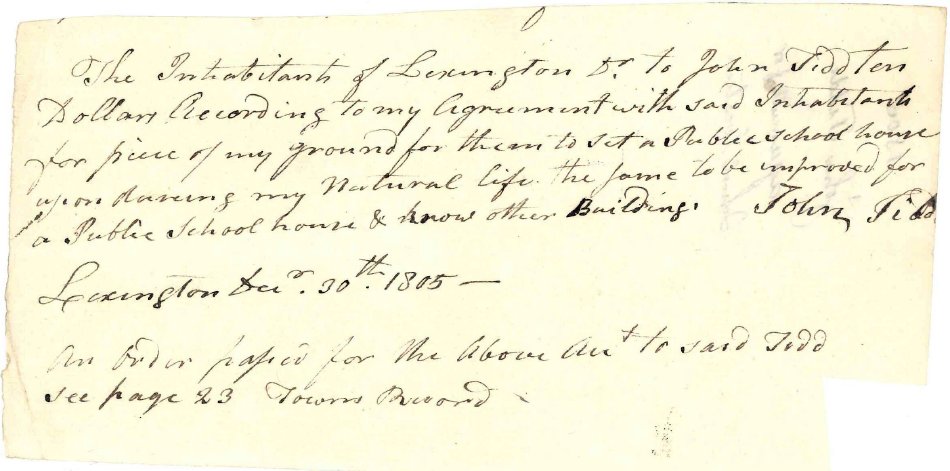 The Inhabitants of Lexington Dr. to John Tidd ten
Dollars According to my Agreement with said Inhabitants
for piece of my ground for them to set a Public school house
upon dureing my Natural life. the same to be improved for
a Public School house & know other Building. John Tidd
Lexington Decr. 30th. 1805 —
An order passed for the Above Act to said Tidd
see page 23 Towns Record